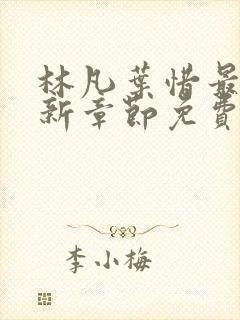 林凡葉惜最
新章節免費
李小梅